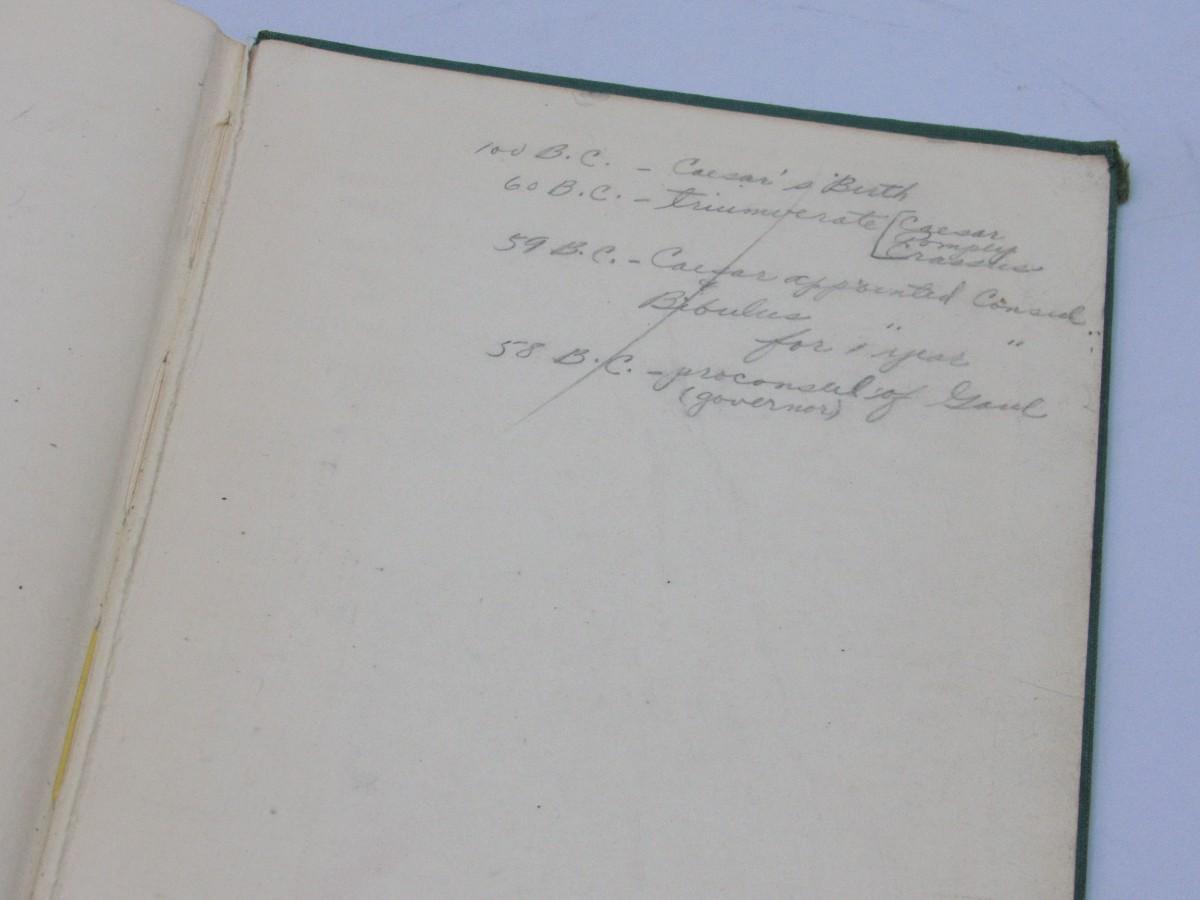 100 B.C. - Caesar's Birth
60 B.C. - triumverate [Caesar
Pompey
Crassus
59 B.C. - Caesar appointed Consul
Bibulus " "
for 1 year
58 B.C. - proconsul of Gaul
(governor)